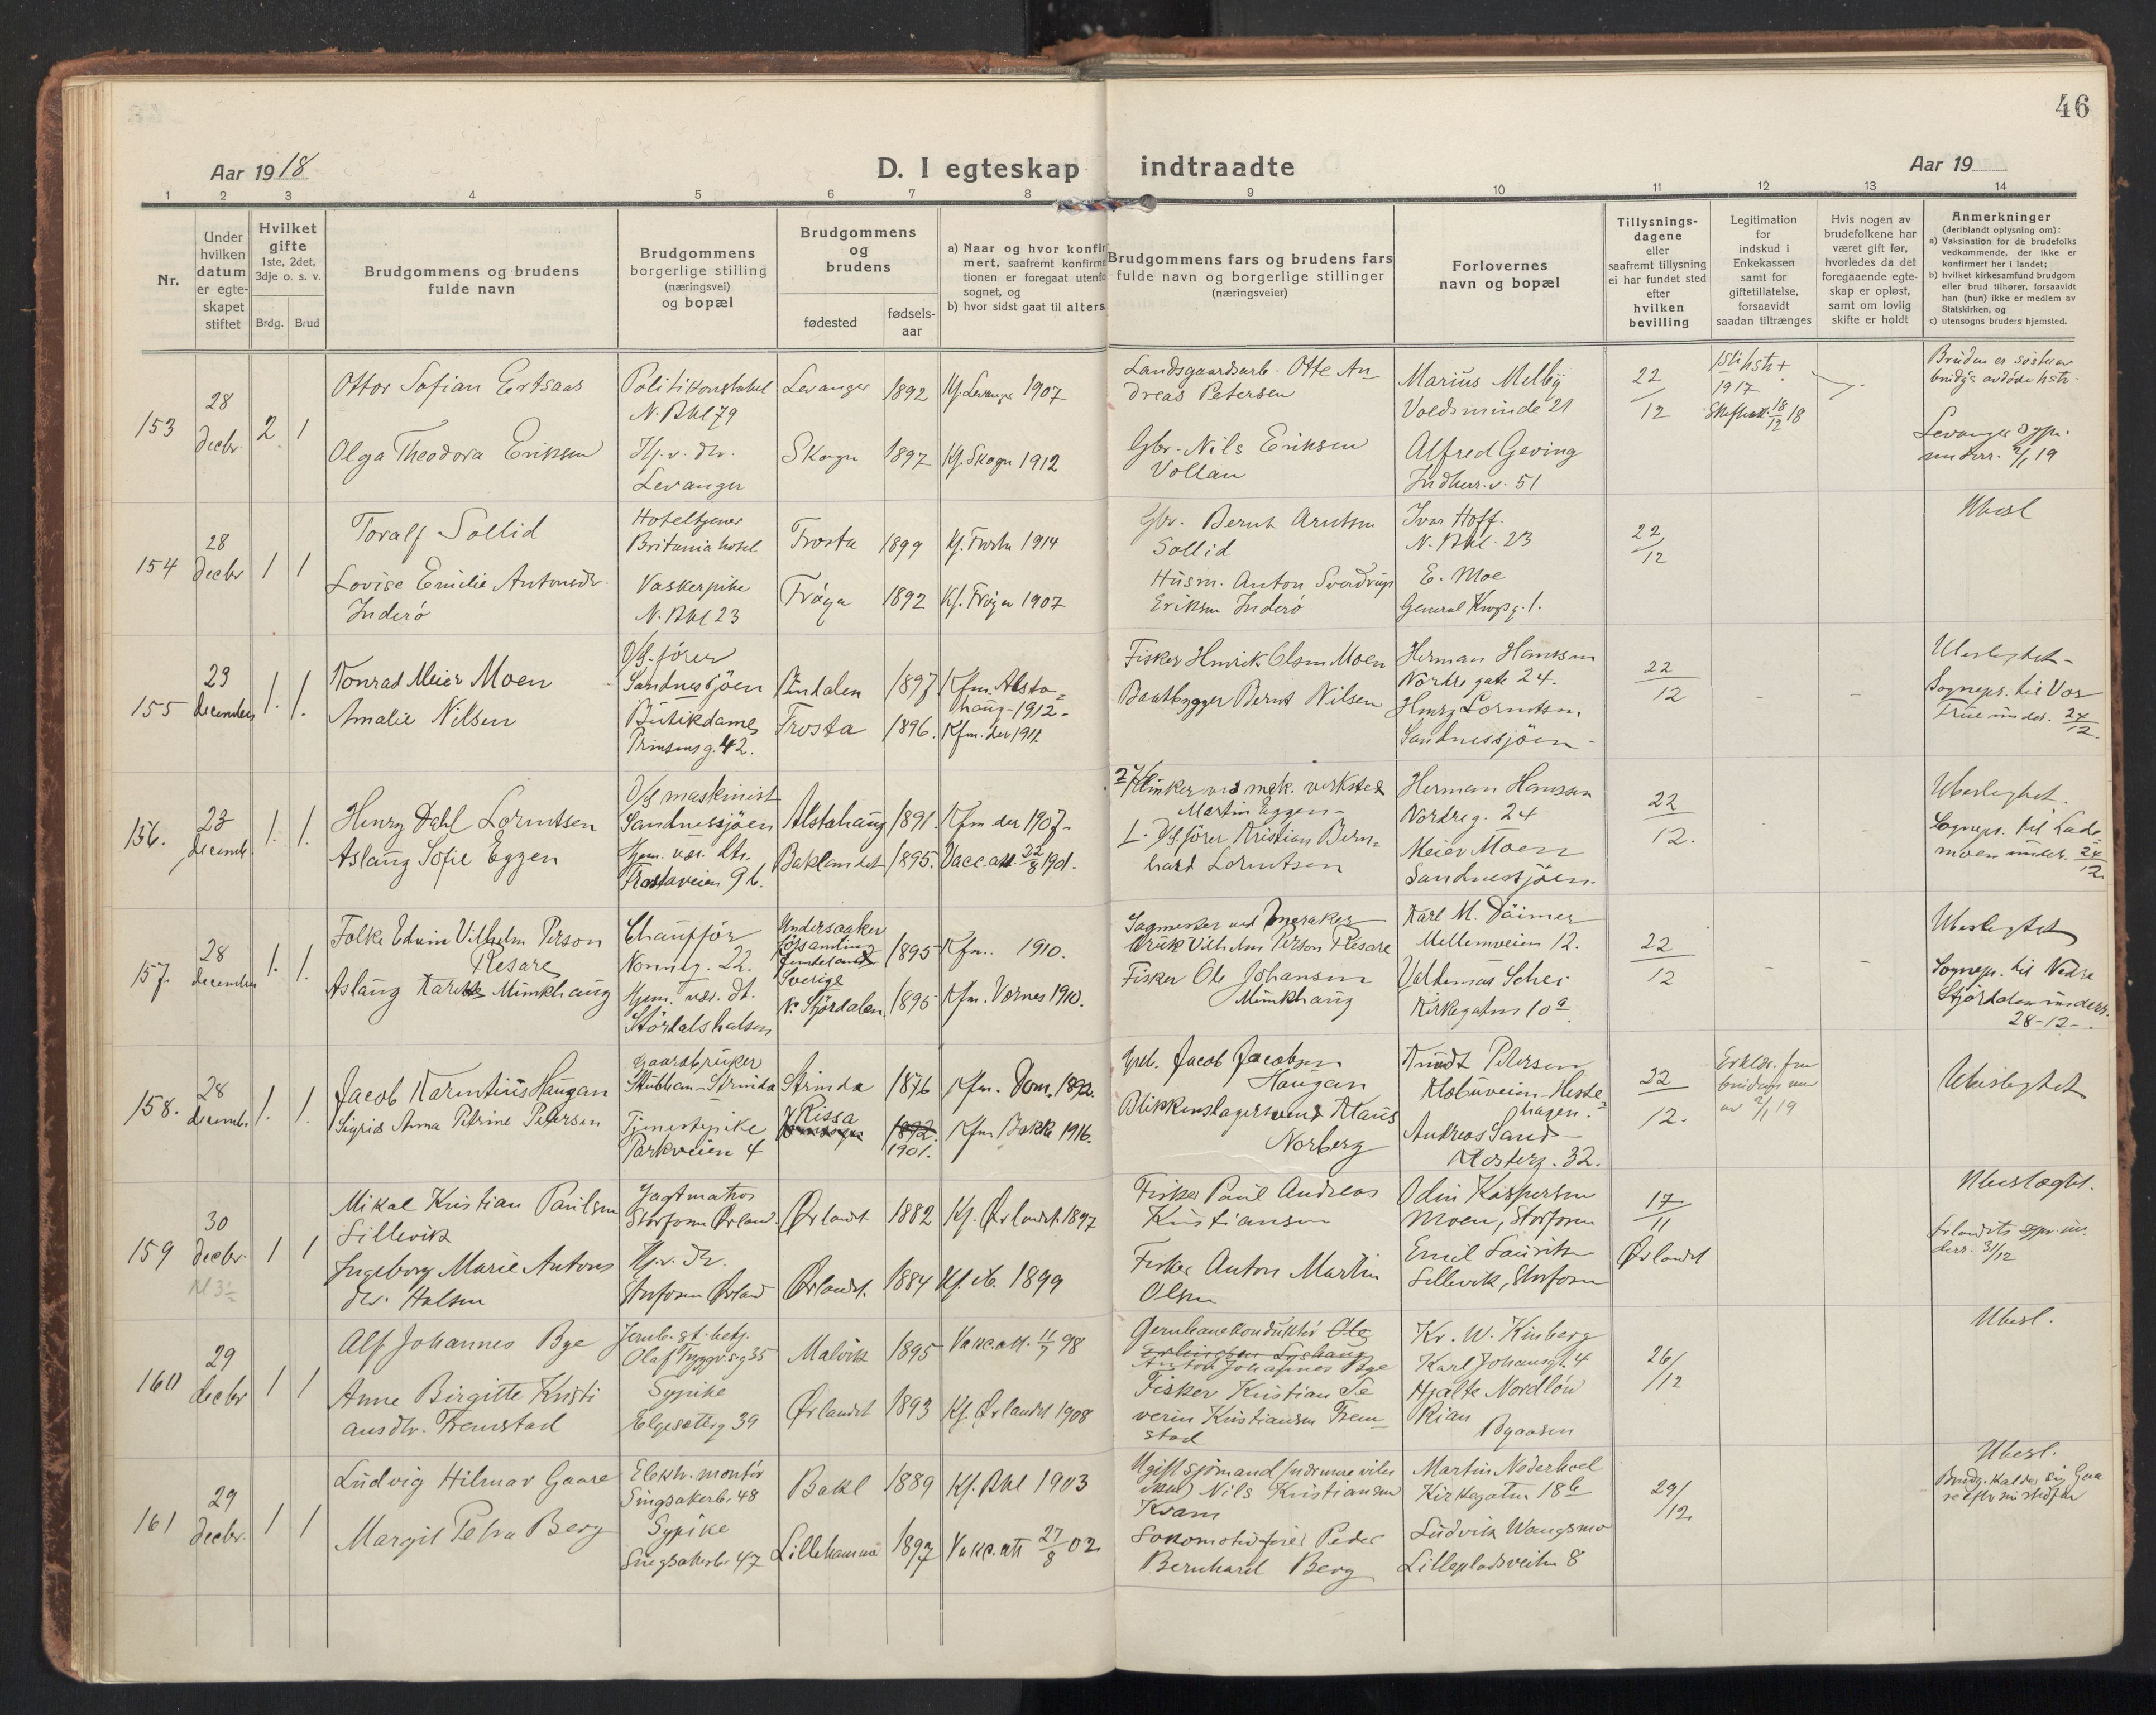 46
Aar 1918
D. I egteskap indtraadte
Aar 19
1 2 3 4 5 6 7 8 9 10 11 12 13 14
Nr.
Under
hvilken
datum
er egte-
skapet
stiftet
Hvilket
gifte
1ste, 2det,
3dje o. s. v.
Brdg. Brud
Brudgommens og brudens
fulde navn
Brudgommens
borgerlige stilling
(næringsvei)
og bopæl
Brudgommens
og
brudens
fødested
fødsels-
aar
a) Naar og hvor konfir
mert, saafremt konfirma
tionen er foregaat utenfo
sognet, og
b) hvor sidst gaat til alters
Brudgommens fars og brudens fars
fulde navn og borgerlige stillinger
(næringsveier)
Forlovernes
navn og bopæl
Tillysnings-
dagene
eller
saafremt tillysning
ei har fundet sted
efter
hvilken
bevilling
Legitimation
for
indskud i
Enkekassen
samt for
giftetillatelse,
forsaavidt
saadan tiltrænges
Hvis nogen av
brudefolkene har
været gift før,
hvorledes da det
foregaaende egte-
skap er opløst,
samt om lovlig
skifte er holdt
Anmerkninger
(deriblandt oplysning om):
a) Vaksination for de brudefolks
vedkommende, der ikke er
konfirmert her i landet;
b) hvilket kirkesamfund brudgom
eller brud tilhører, forsaavidt
han (hun) ikke er medlem av
Statskirken, og
c) utensogns bruders hjemsted.
153
28
decbr.
2 1
Ottar Sofian Ertsaas
Olga Theodora Eriksen
Politikonstabel
N. Bkl 79
Hj. v. dtr.
Levanger
Levanger 1892 Kf. Levanger 1907
Skogn 1897 Kf. Skogn 1912
Landsgaardsarb. Otte An-
dreas Petersen
Gbr. Nils Eriksen
Vollan
Marius Melby
Voldsminde 21
Alfred Geving
Indherr. v. 51
22
12
1917
18/12 18
Bruden er søster av
brudgs avdøde hstr.
Levanger sgpr.
underr. 2/1 19
154
28
decbr
1 1
Toralf Sollid
Lovise Emilie Antonsdr.
Inderø
Hoteltjener
Britania hotel
Vaskerpike
N. Bkl 23
Frosta 1899 Kf. Frosta 1914
Frøya 1892 Kf. Frøya 1907
Gbr. Bernt Arntsen
Sollid
Husm. Anton Sverdrup
Eriksen Inderø
Ivar Hoff
N. Bkl. 23
E. Moe
General Krogsg. 1.
22
12
Ubesl
155
29
decembr
1. 1.
Konrad Meier Moen
Amalie Nilsen
D/S-fører
Sandnessjöen
Butikdame
Prinsensg. 42.
Vindalen 1897 Kfm. Alsta-
haug-1912-
Frosta 1896. Kfm. der 1911.
Fisker Henrik Olsen Moen
Baatbygger Bernt Nilsen
Herman Hanssen
Nordre gate 24.
Henry Lorentsen
Sandnessjöen-
22
12
Ubeslegtet-
Sognepr. til Vor
Frue under. 24/12.
156.
23
decemb.
1. 1.
Henry Dahl Lorentsen
Aslaug Sofie Eggen
D/S maskinist
Sandnessjöen
Hjem. vær. dtr.
Frostaveien 9 b.
Alstahaug 1891. Kfm der 1907-
Baklandet 1895. Vacc. att. 22/8 1901.
Klinker ved mek. verksted
Martin Eggen-
D/S. fører Kristian Bern-
hard Lorentsen
Herman Hanssen
Nordreg. 24
Meier Moen
Sandnessjöen.
22
12.
Ubeslegtet.
Sognepr. til Lade-
moen under. 24/12.
157.
28
december
1. 1.
Folke Edvin Vilhelm Person
Resare
Aslaug Munkhaug
Chauffør
Nonneg. 22.
Hjem. vær. dt.
Stördalshalsen
Undersaaker
Sverige
1895 Kfm. 1910.
N. Stjørdalen 1895 Kfm. Værnes 1910.
Sagmester ved Meraker
bruk Vilhelm Person Resare
Fisker Ole Johansen
Munkhaug
Karl M. Däimer
Mellemveien 12.
Valdemar Schei
Kirkegaten 10 a
22
12
Ubeslegtet
Sognepr. til Nedre
Stjørdalen underr.
28-12-.
158.
28
decembr
1. 1.
Jacob Karentius Haugan
Sigrid Anna Petrine Petersen
Gaardbruker
Stubban-Strinda
Tjenestepike
Parkveien 4
Strinda 1876 Kfm. Dom. 1892.
Rissa 1892. 1901. Kfm Bakke 1916.
Grdb. Jacob Jacobsen
Haugan
Blikkenslagersvend Klaus
Norberg
Knudt Petersen
Klæbuveien-Heste-
hagen.
Andreas Sand-
Klosterg. 32.
22
12.
Erklær. fra
av 2/1 19
Ubeslegtet
159
30
decbr.
1 1
Mikal Kristian Paulsen
Lillevik
Ingeborg Marie Antons
dtr. Halsen
Jagtmatros
Storfosen Ørland.
Hj. v. dr.
Storfosen Ørland
Ørlandet 1882 Kf. Ørlandet 1897
Ørlandet. 1884 Kf. ib. 1899
Fisker Paul Andreas
Kristiansen
Fisker Anton Martin
Olsen
Odin Kaspersen
Moen, Storfosen
Emil Lauritz
Lillevik, Storfosen
17
11
Ørlandet
Ubeslægtet.
Ørlandets sgpr. un-
derr. 31/12
160
29
decbr
1 1
Alf Johannes Bye
Anne Birgitte Kristi
ansdtr. Fremstad
Jernb. st. betj.
Olaf Tryggvs. g 35
Sypike
Elgesetterg 39
Malvik 1895 Vakc. att. 11/7 98
Ørlandet 1893 Kf. Ørlandet 1908
Jernbanekonduktør Ole
Anton Johannes Bye
Fisker Kristian Se
verin Kristiansen Frem-
stad
Kr. W. Kinberg
Karl Johansgt. 4
Hjalte Nordlöw
Rian
Byaasen
26/
/12
Ubesl.
161
29
decbr.
1 1
Ludvig Hilmar Gaare
Margit Petra Berg
Elektr. montør
Singsakerb. 48
Sypike
Singsakerb. 47
Bakl 1889 Kf. Bkl 1903
Lillehammer 1897 Vakc. att 27/8 02
Ugift sjömand
Nils Kristiansen
Kvam
Lokomotivfører Peder
Bernhard Berg
Martin Nederhoel
Kirkegaten 18 b
Ludvik Wangsmo
Lillepladsveiten 8
29/
/12
Ubesl.
Brudg. kalder sig Gaa
re